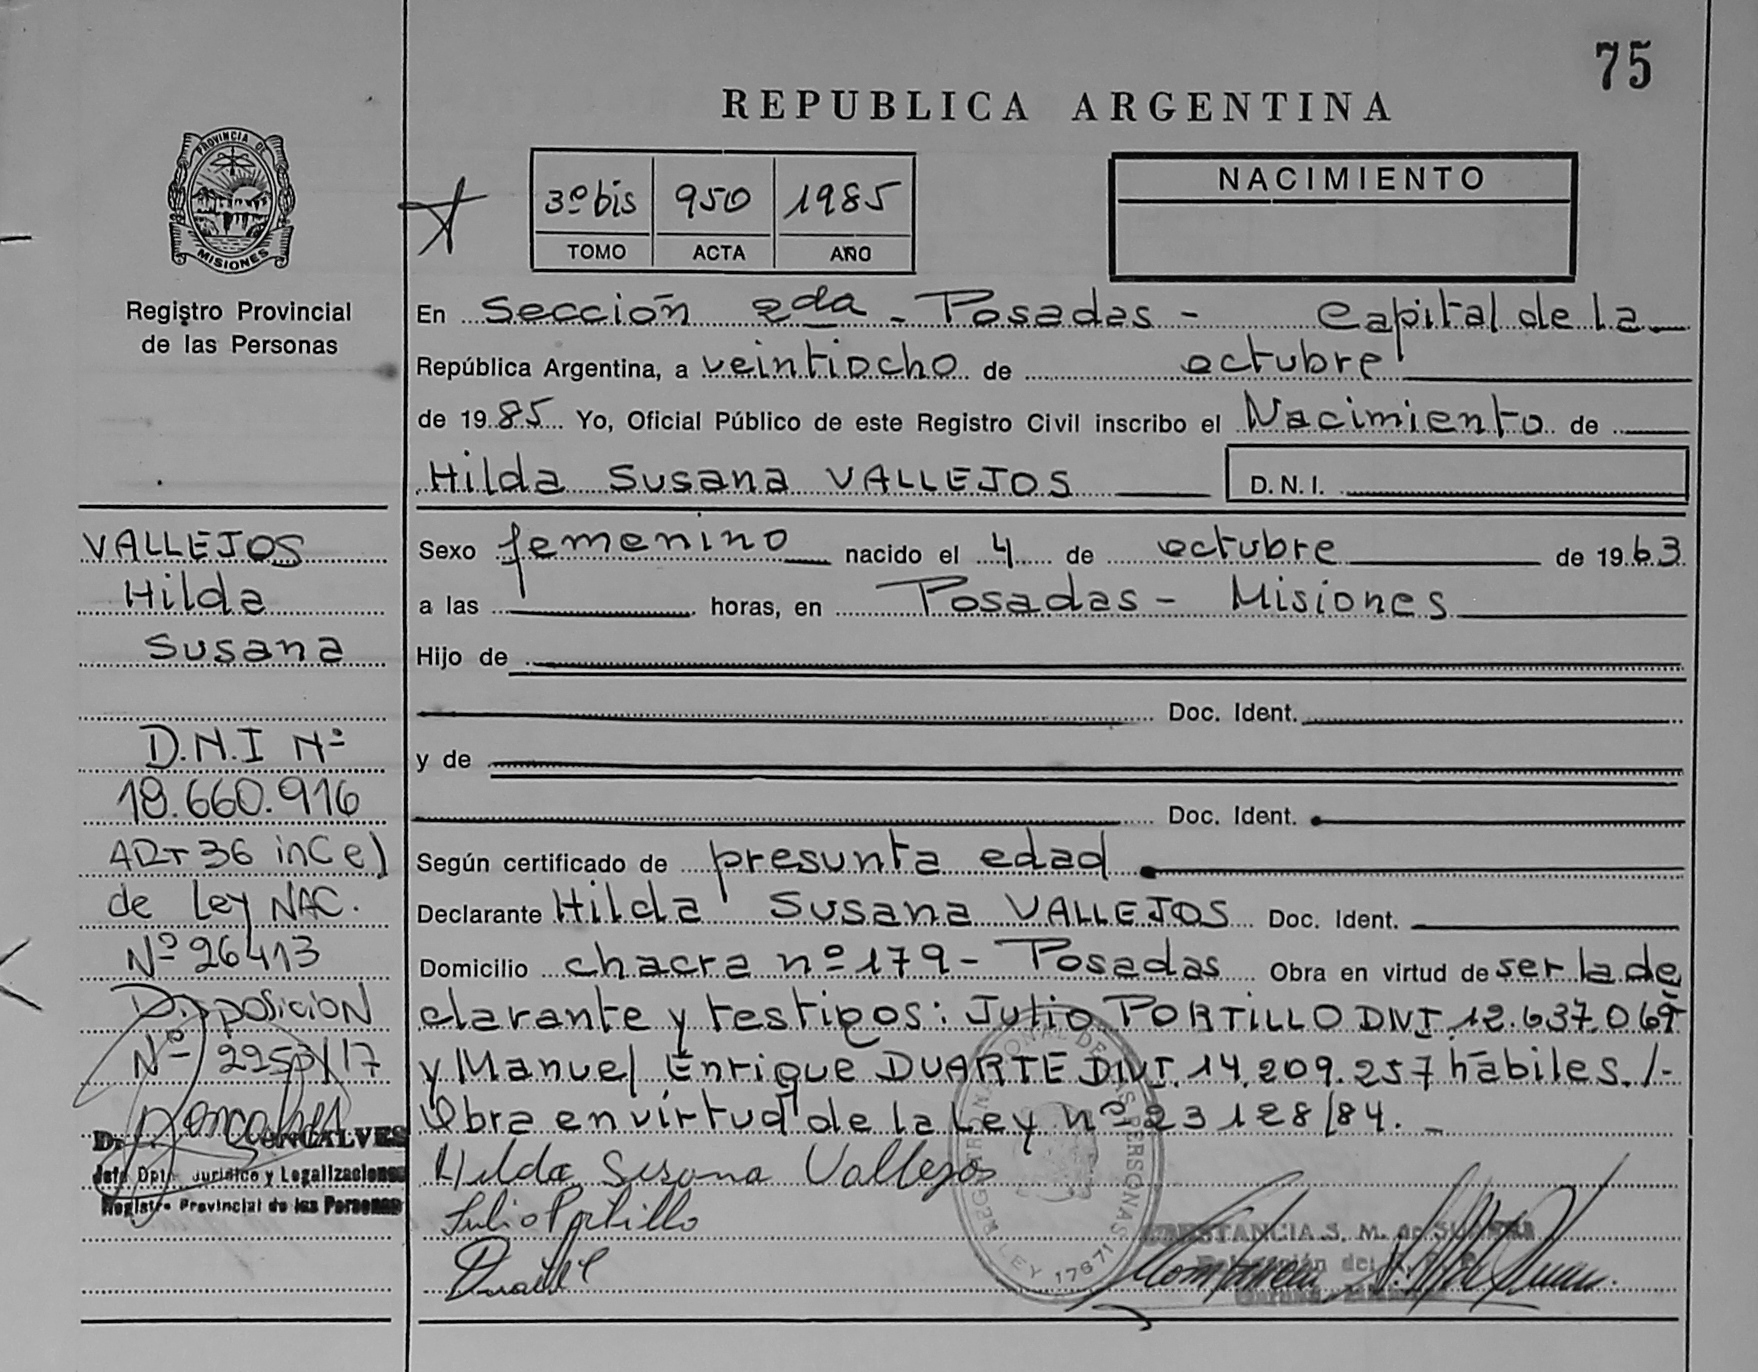 75
REPUBLICA ARGENTINA
PROVINCIA DE
MISIONES
Registro Provincial
de las Personas
3º bis 950 1985
TOMO ACTA AÑO
NACIMIENTO
En Sección 2da - Posadas - Capital de la
República Argentina, a veintiocho de octubre
de 1985 Yo, Oficial Público de este Registro Civil inscribo el Nacimiento de
Hilda Susana VALLEJOS D.N.I.
Sexo femenino nacido el 4 de octubre de 1963
a las horas, en Posadas - Misiones
Hijo de
Doc. Ident.
y de
Doc. Ident.
Según certificado de presunta edad
Declarante Hilda Susana VALLEJOS Doc. Ident.
Domicilio chacra nº 179 - Posadas Obra en virtud de ser la de
clarante y testigos: Julio PORTILLO DNI. 12.637.069
y Manuel Enrique DUARTE DNI. 14.209.257 hábiles./-
Obra en virtud de la Ley nº 23128/84. -
Hilda Susana Vallejos
Julio Portillo
Duarte
VALLEJOS
Hilda
Susana
D.N.I Nº
18.660.916
ART 36 inC e)
de Ley NAC.
Nº 26413
Disposición
Nº 2253/17
GONCALVES
Jefe Dpto. Jurídico y Legalizaciones
Registro Provincial de las Personas
LEY 17671
S. M. de